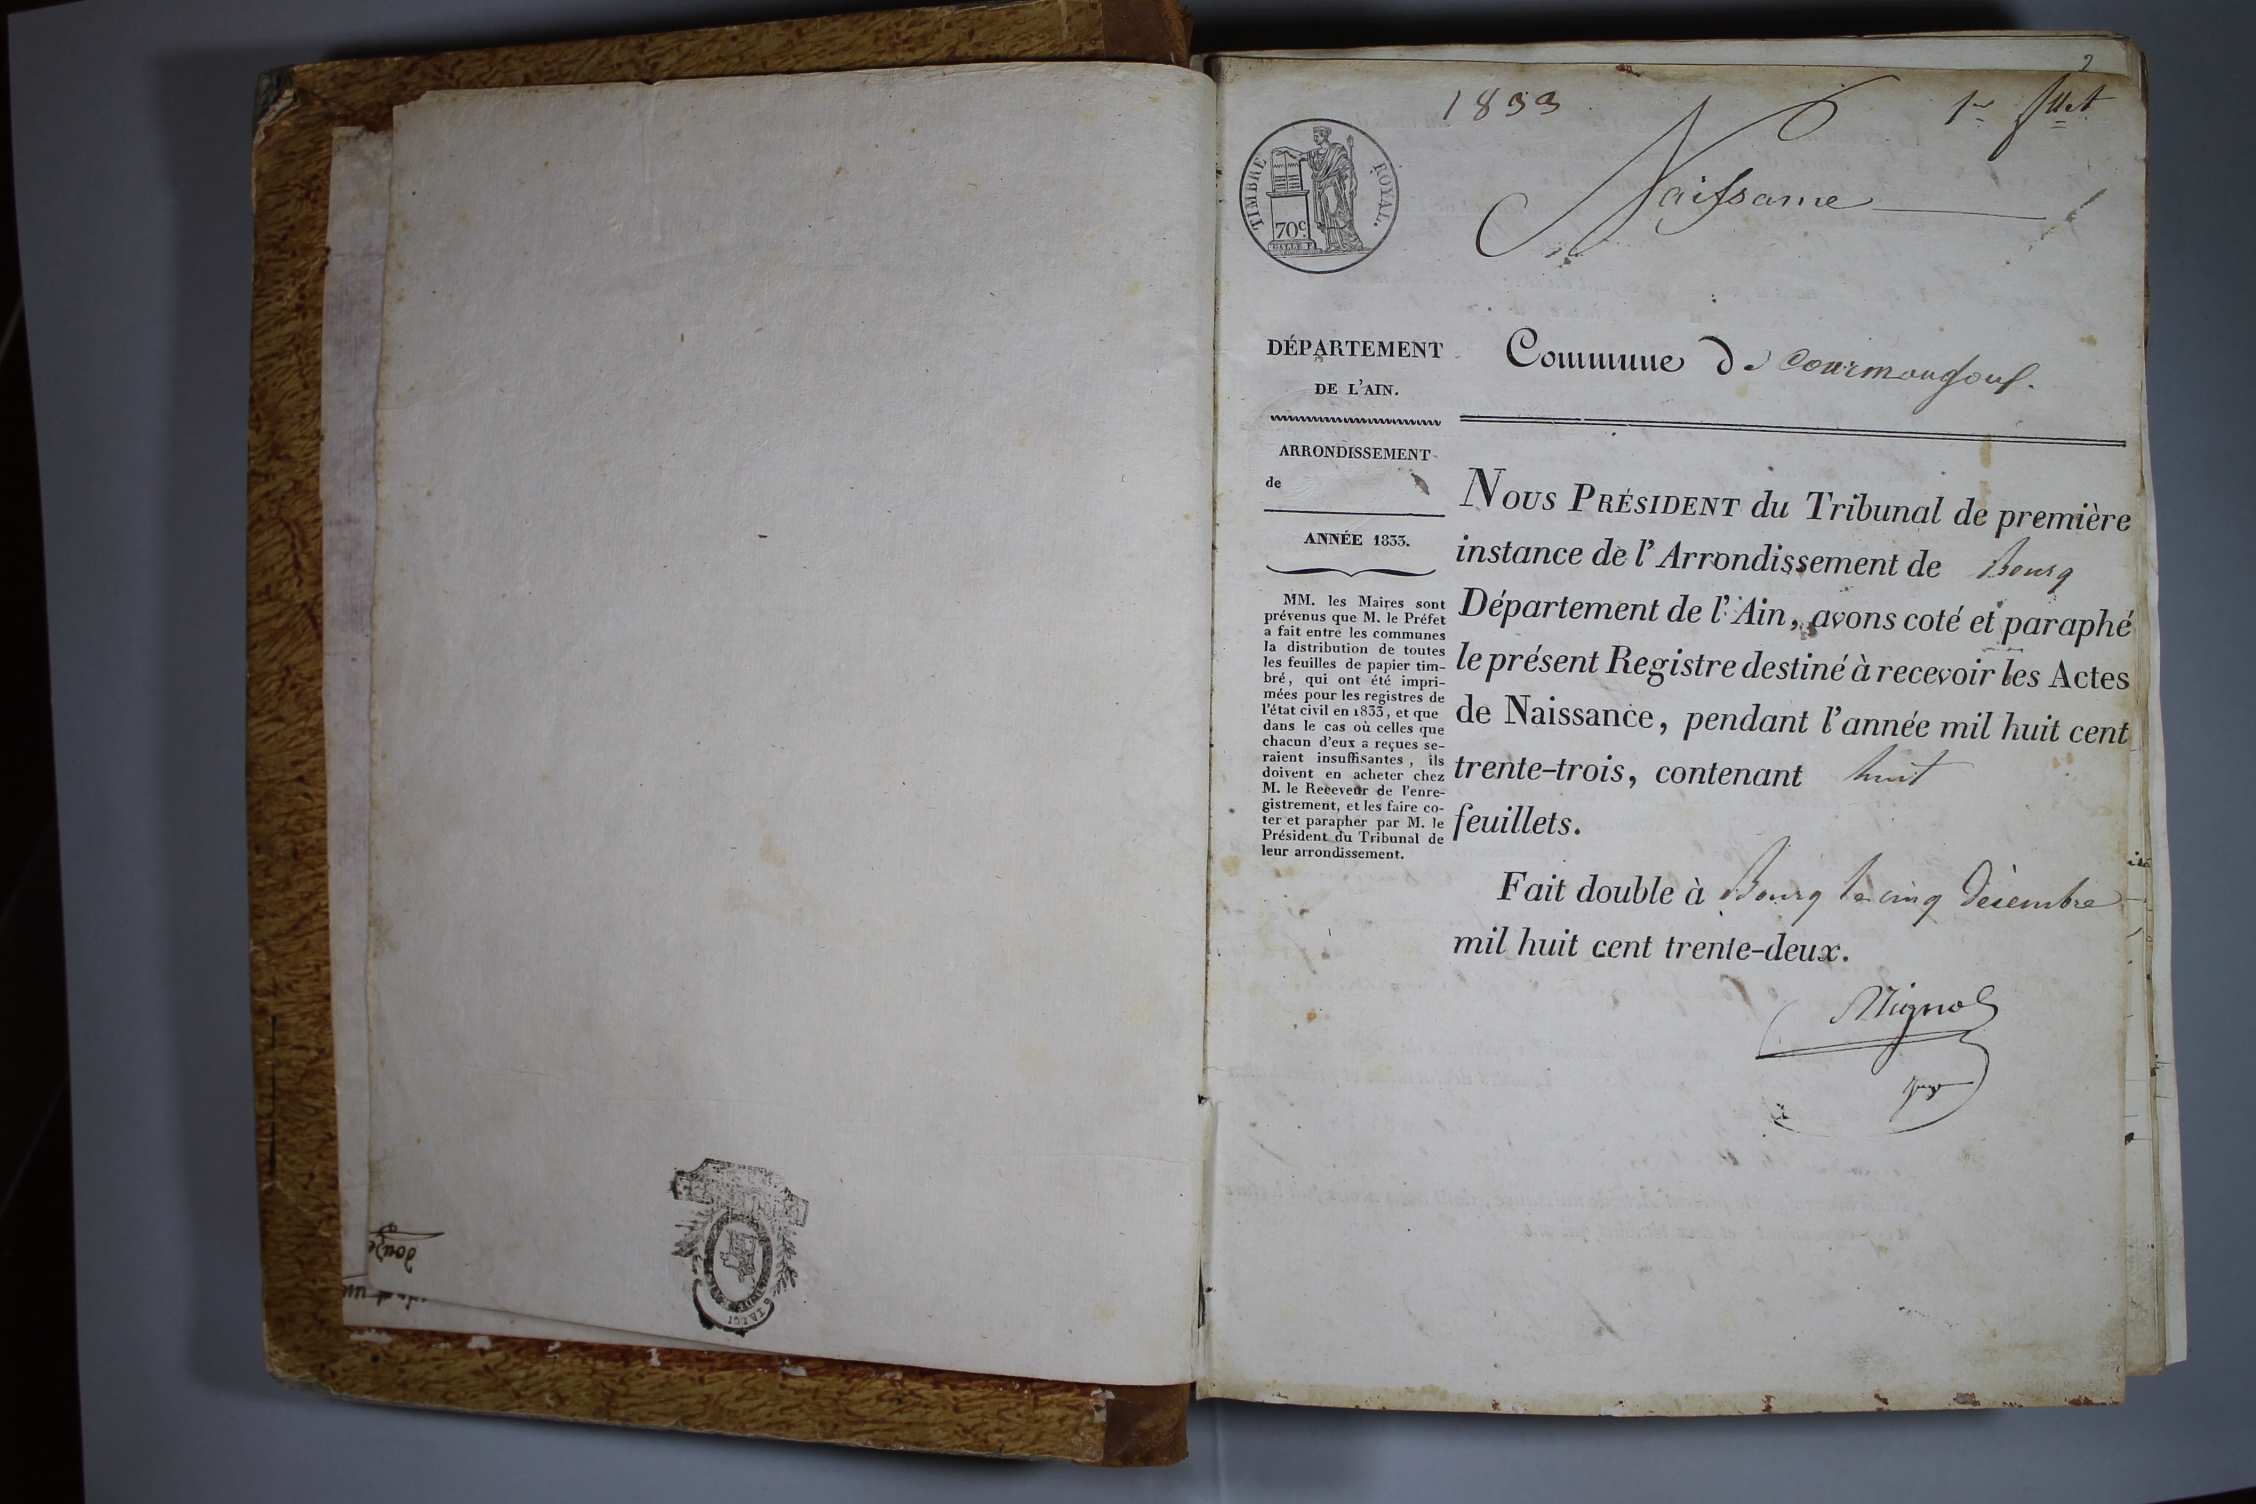 1833
1er fllet
Naissance
TIMBRE ROYAL.
70c.
DÉPARTEMENT
DE L'AIN.
Commune De Courmangoux.
ARRONDISSEMENT
de
ANNÉE 1833.
MM. les Maires sont
prévenus que M. le Préfet
a fait entre les communes
la distribution de toutes
les feuilles de papier tim-
bré, qui ont été impri-
mées pour les registres de
l'état civil en 1833, et que
dans le cas où celles que
chacun d'eux a reçues se-
raient insuffisantes, ils
doivent en acheter chez
M. le Receveur de l'enre-
gistrement, et les faire co-
ter et parapher par M. le
Président du Tribunal de
leur arrondissement.
NOUS PRÉSIDENT du Tribunal de première
instance de l'Arrondissement de Bourg
Département de l'Ain, avons coté et paraphé
le présent Registre destiné à recevoir les Actes
de Naissance, pendant l'année mil huit cent
trente-trois, contenant huit
feuillets.
Fait double à Bourg le cinq Décembre
mil huit cent trente-deux.
douze